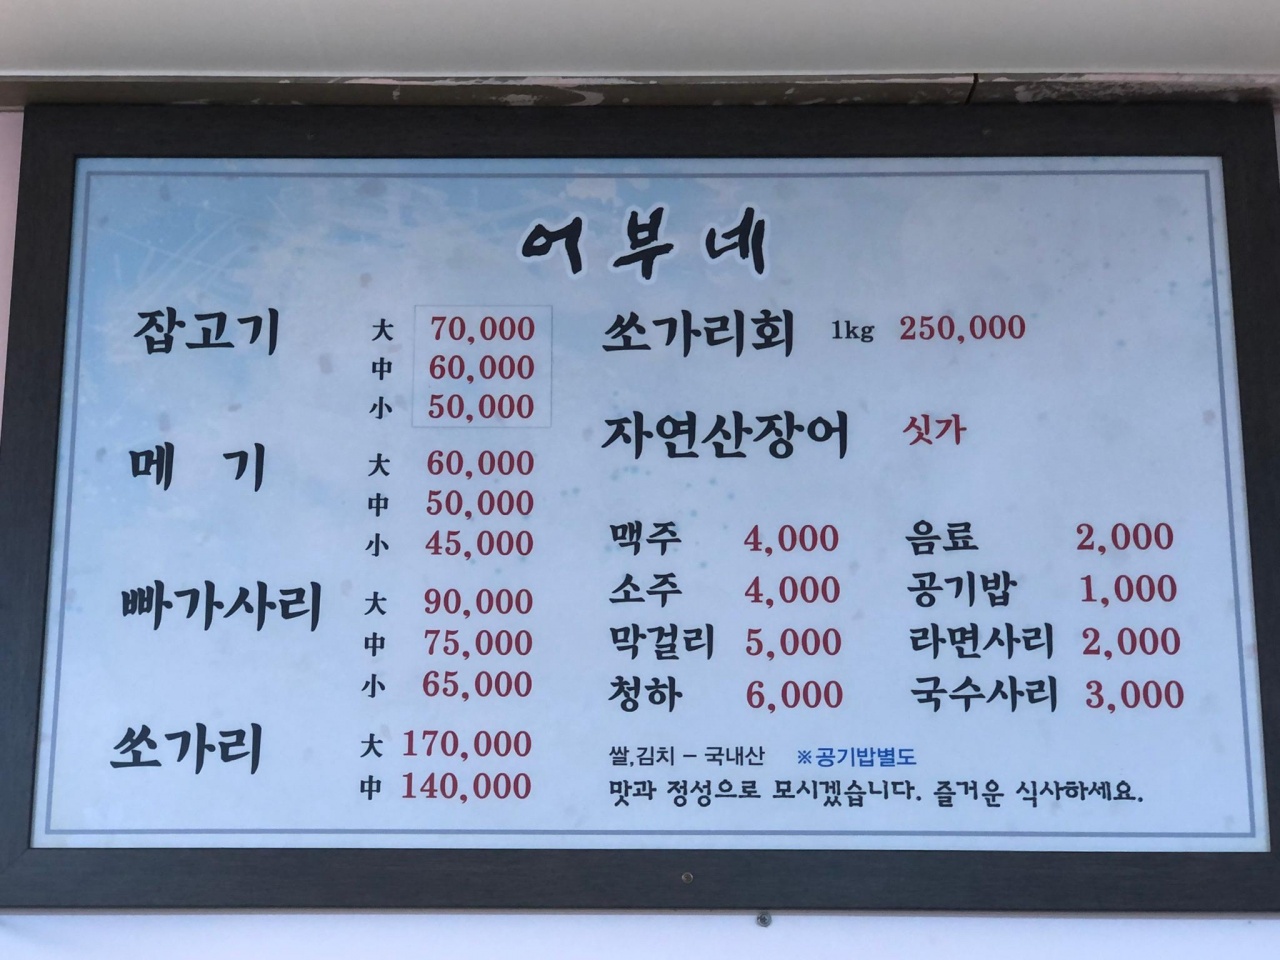 어부네
잡고기 大 70,000
中 60,000
小 50,000
메 기 大 60,000
中 50,000
小 45,000
빠가사리 大 90,000
中 75,000
小 65,000
쏘가리 大 170,000
中 140,000
쏘가리회 1kg 250,000
자연산장어 싯가
맥주 4,000 음료 2,000
소주 4,000 공기밥 1,000
막걸리 5,000 라면사리 2,000
청하 6,000 국수사리 3,000
쌀,김치 - 국내산 ※공기밥별도
맛과 정성으로 모시겠습니다. 즐거운 식사하세요.